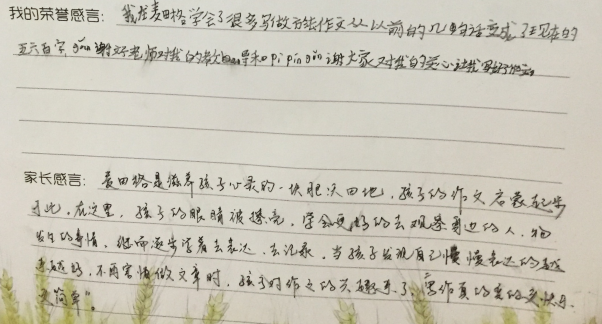 我的荣誉感言：我在麦田格学会了很多写做方法作文从以前的几句话变成了现在的
五六百字gǎn谢老师对我的教导和pi pin gǎn谢大家对我的爱心让我
家长感言：麦田格是滋养孩子心灵的一块肥沃田地，孩子的作文启蒙起步
于此，在这里，孩子的眼睛被擦亮，学会更好的去观察身边的人，物
发生的事情，继而逐步学着去表达，去记录，当孩子发现自己慢慢表达的越
来越好，不再害怕做文章时，孩子对作文的兴趣来了，写作真的变的更快乐
更简单"。